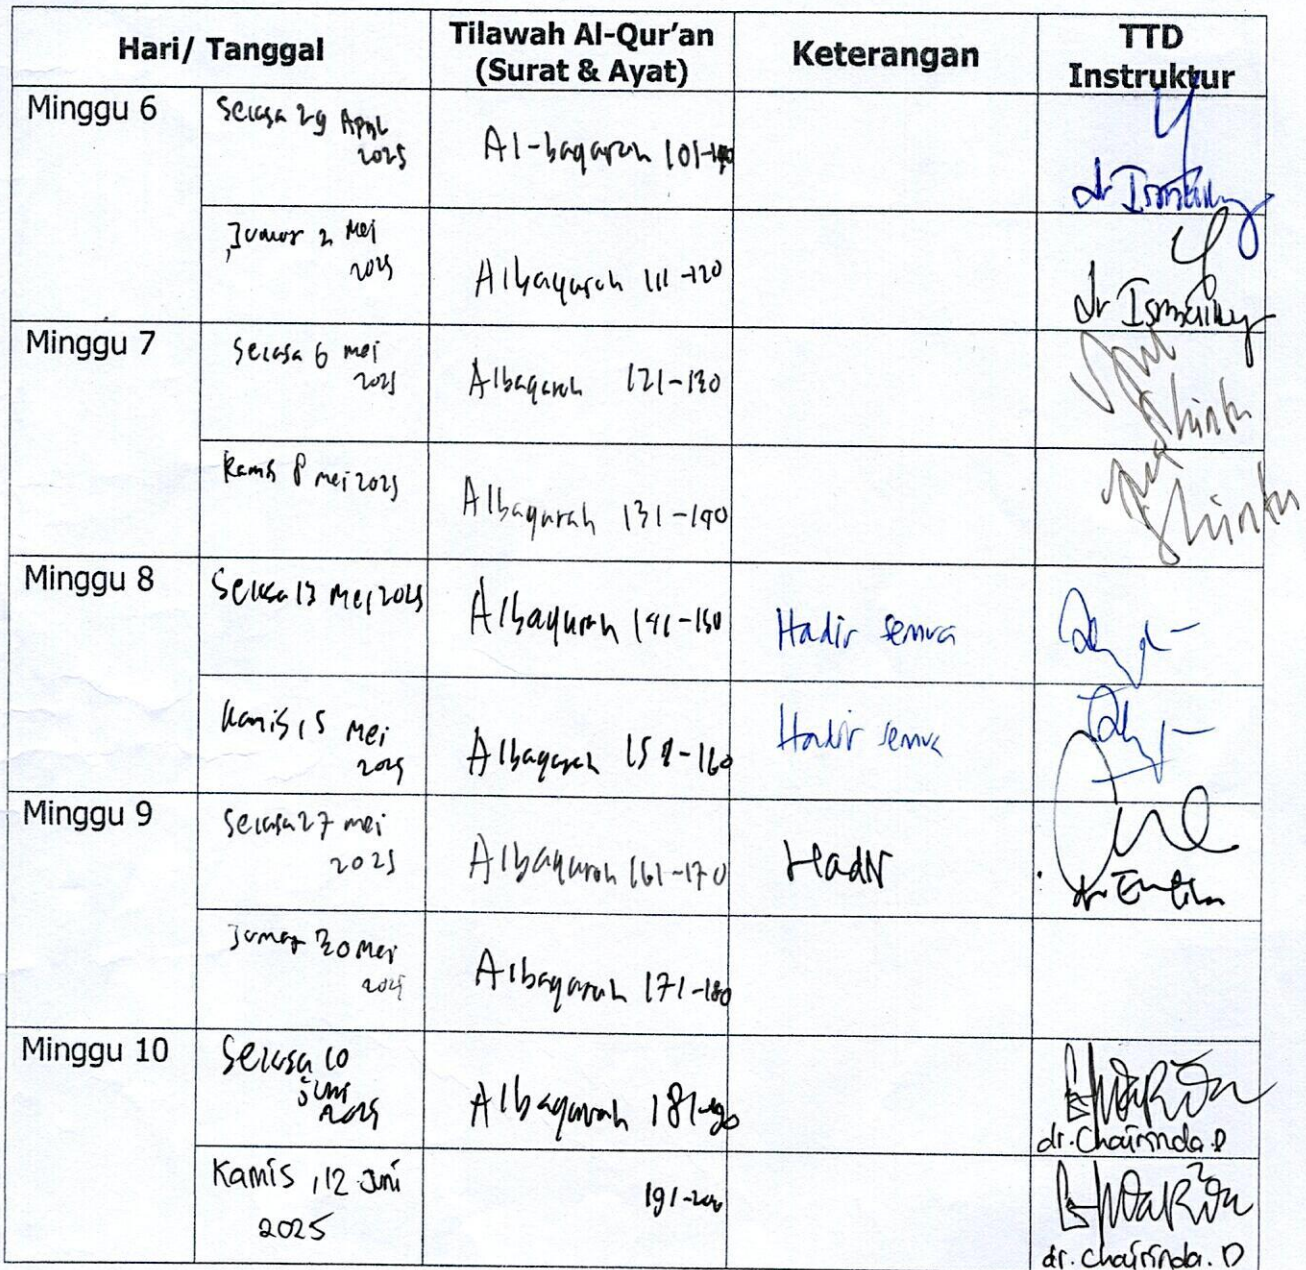 Hari/ Tanggal
Tilawah Al-Qur'an
(Surat & Ayat)
Keterangan
TTD
Instruktur
Minggu 6
Selasa 29 April
2025
Al-baqarah 101-110
dr Ismaily
Jumat 2 Mei
2025
Albaqarah 111-120
dr Ismaily
Minggu 7
Selasa 6 mei
2025
Albaqarah 121-130
Shinta
Kamis 8 mei 2025
Albaqarah 131-140
Shinta
Minggu 8
Selasa 13 Mei 2025
Albaqarah 141-150
Hadir semua
Kamis 15 Mei
2025
Albaqarah 151-160
Hadir semua
Minggu 9
Selasa 27 mei
2025
Albaqarah 161-170
Hadir
Jumat 30 Mei
2025
Albaqarah 171-180
Minggu 10
Selasa 10
juni
2025
Albaqarah 181-190
dr. Chairinda. D
Kamis, 12 Juni
2025
191-200
dr. Chairinda. D